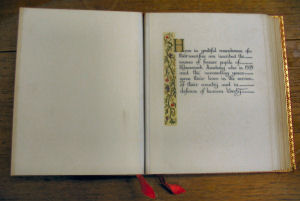 Here in grateful remembrance of
their sacrifice are inscribed the
names of former pupils of
Kilmarnock Academy who in 1939
and the succeeding years
gave their lives in the service
of their country and in
defence of human liberty